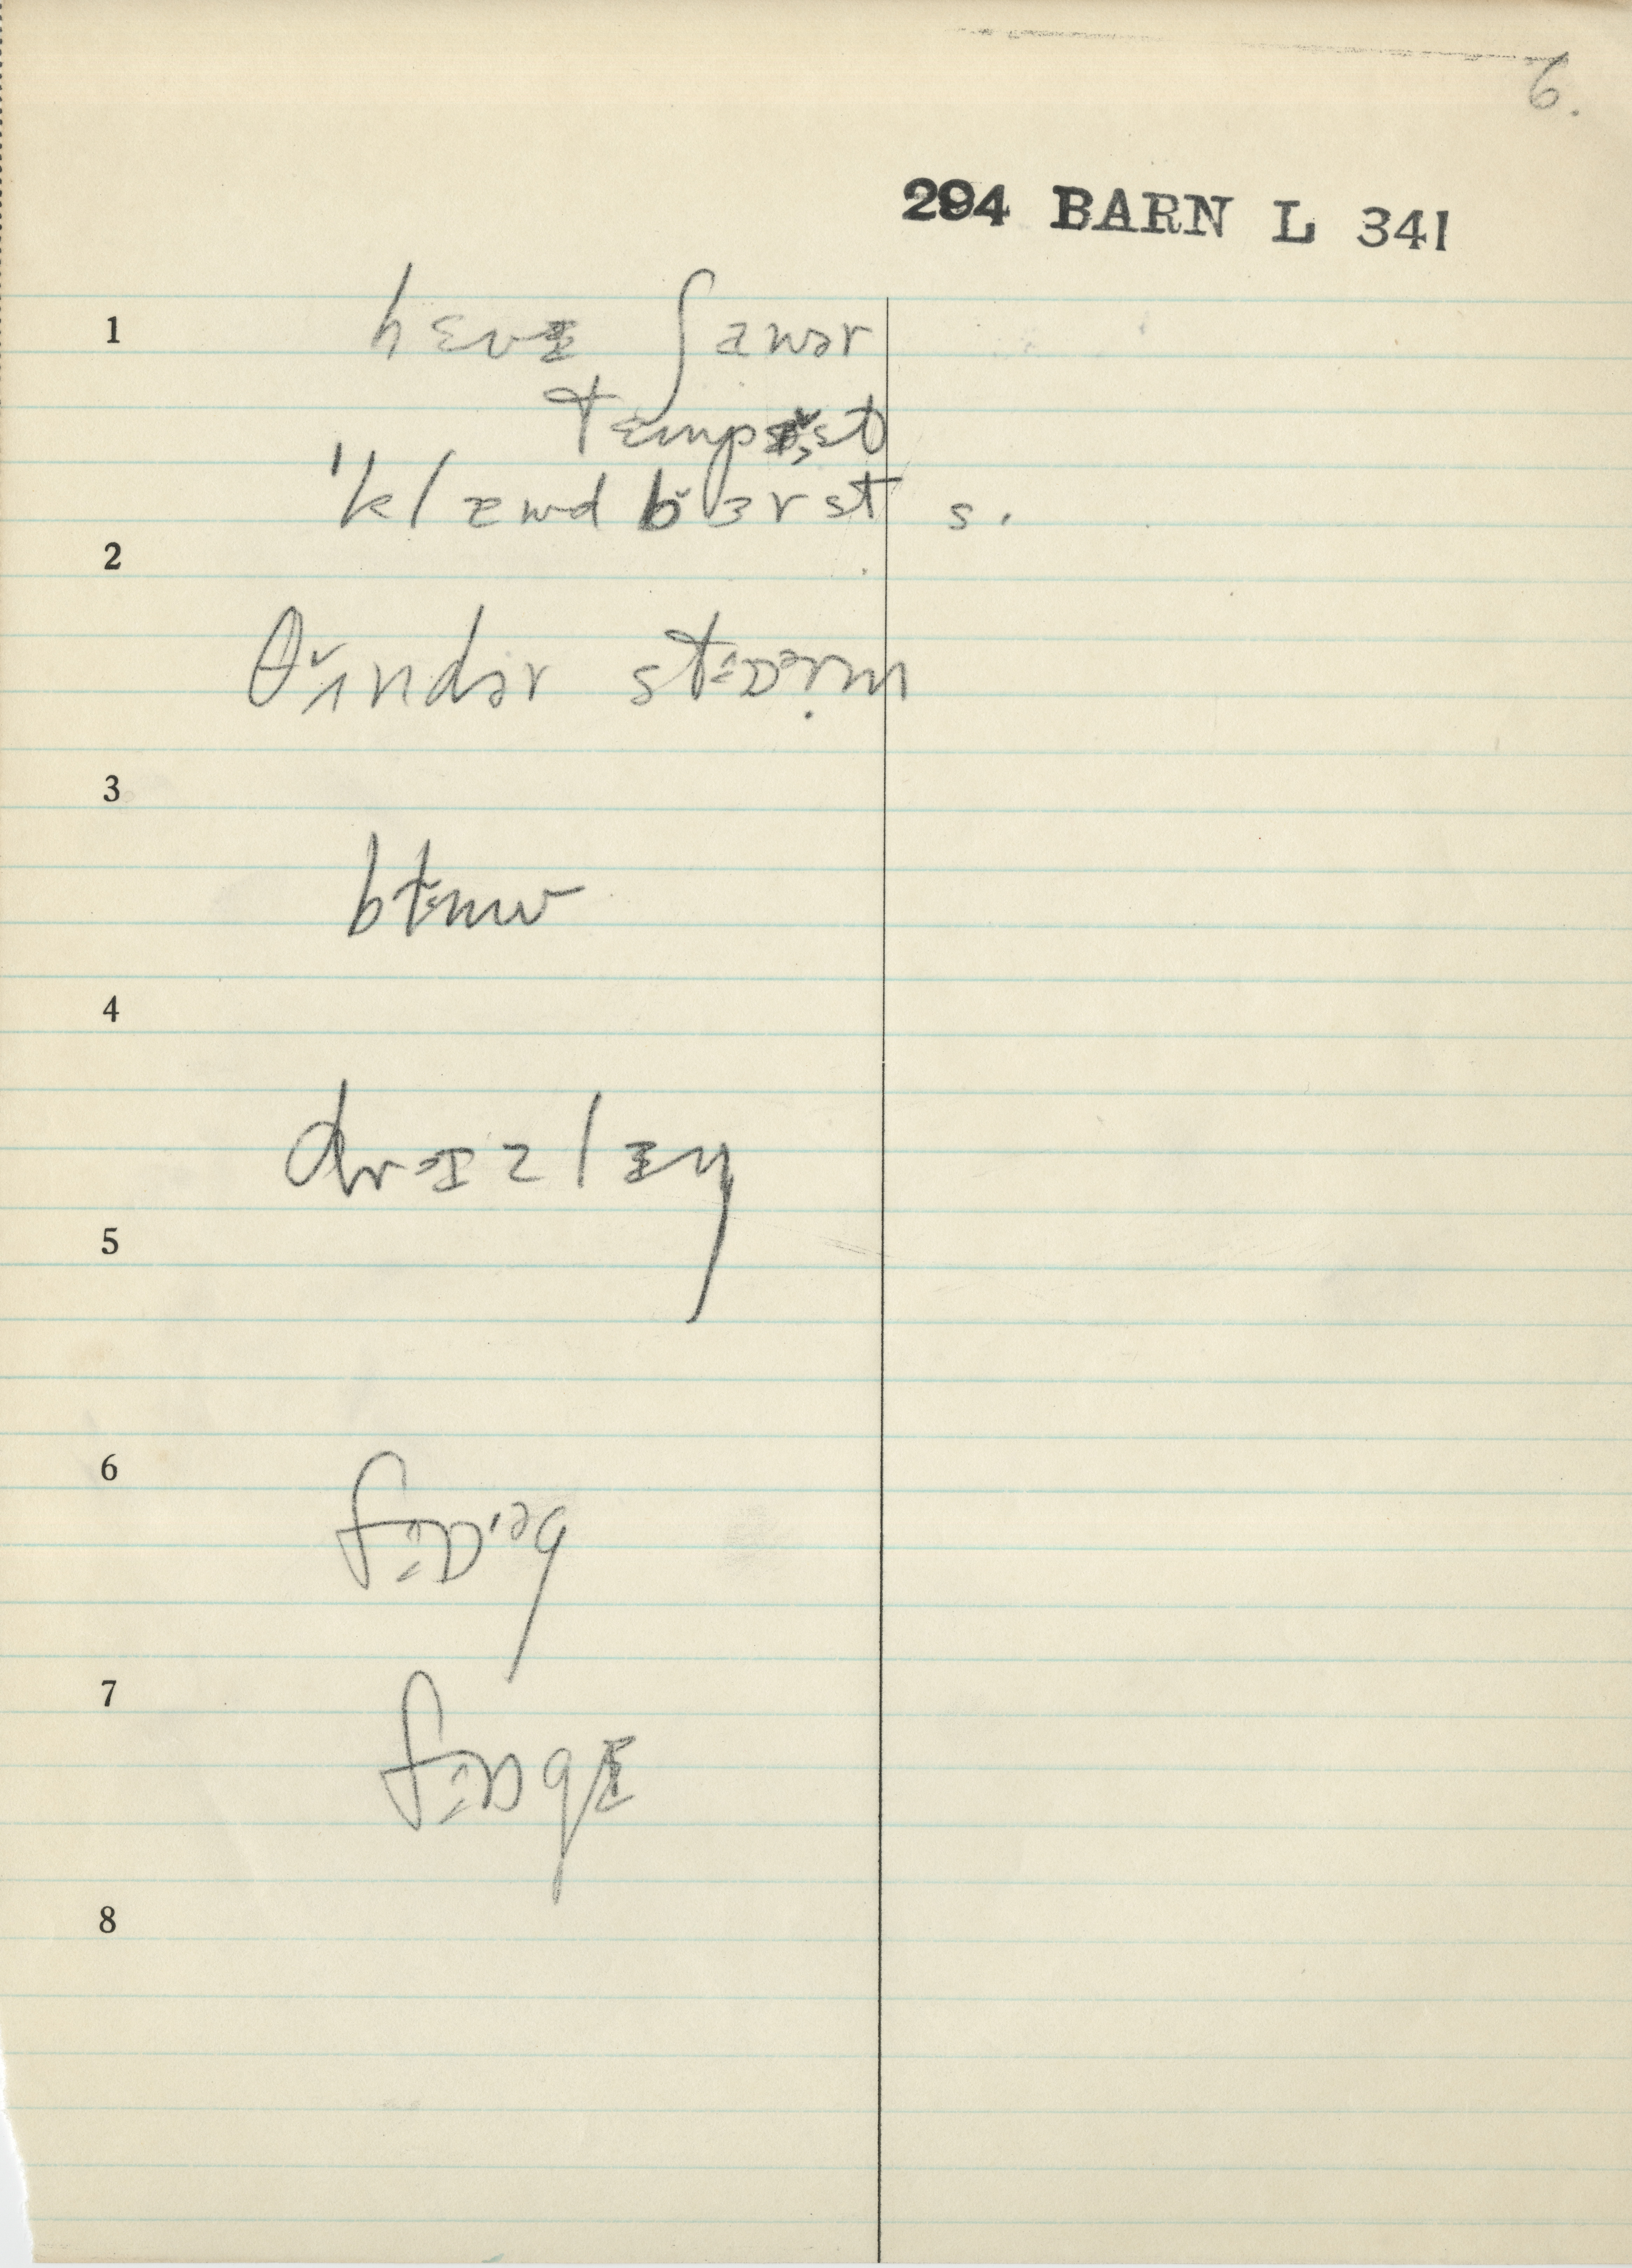 6.
294 BARN L 341
1
hɛvɪ ʃawər
tɛmpəst
ˈklawd bɜrst s.
2
θʌndər stɒərm
3
4
drɪzlɪŋ
5
6
fɒˑəg
7
fɒgɪ
8